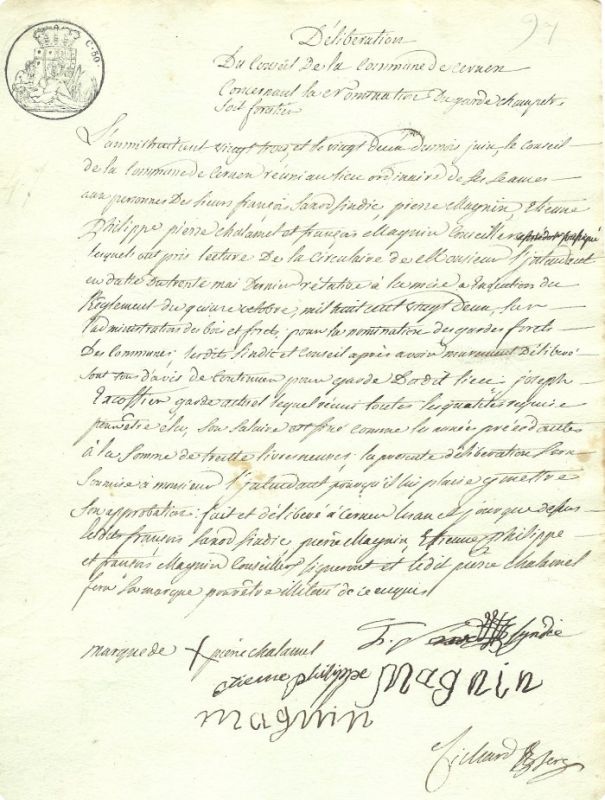 97
C. 50
Délibération
Du Conseil De la Commune de cernex
Concernant la Nomination Du garde champetre
soit forestier
L'an mil huit cent vingt trois et le vingt deux du mois juin, le Conseil
De la Commune de Cernex réuni au lieu ordinaire de ses séances
aux personnes Des sieurs françois sindic pierre Magnin, Etienne
Philippe pierre chalamel et françois Magnin Conseillers
lesquels ont pris lecture De la Circulaire de Monsieur l'intendant
en datte du trente mai Dernier rélative à la mise a éxécution du
Réglement du quinze octobre, mil huit cent vingt deux, sur
l'administration des bois et forets, pour la nomination des gardes forets
Des communes; lesdit sindic et Conseil après avoir murement Délibéré
sont tous d'avis de continuer pour garde Dudit lieu, joseph
Excoffier garde actuel lequel réuni toutes les qualités requise
pour être élu, son salaire est fixé comme les année précédantes
à la somme de trente livres neuves: la présente délibération sera
soumise à monsieur l'intendant pour qu'il lui plaise y mettre
son approbation: fait et délibéré à cernex lesan et jour que dessus
lesdits françois sindic pierre Magnin, Etienne philippe
et françois Magnin Conseillers signeront et ledit pierre chalamel
fera sa marque pour être illitéré de ce enquis
marque de + pierre chalamel
f. Syndic
etienne philippe Magnin
magnin